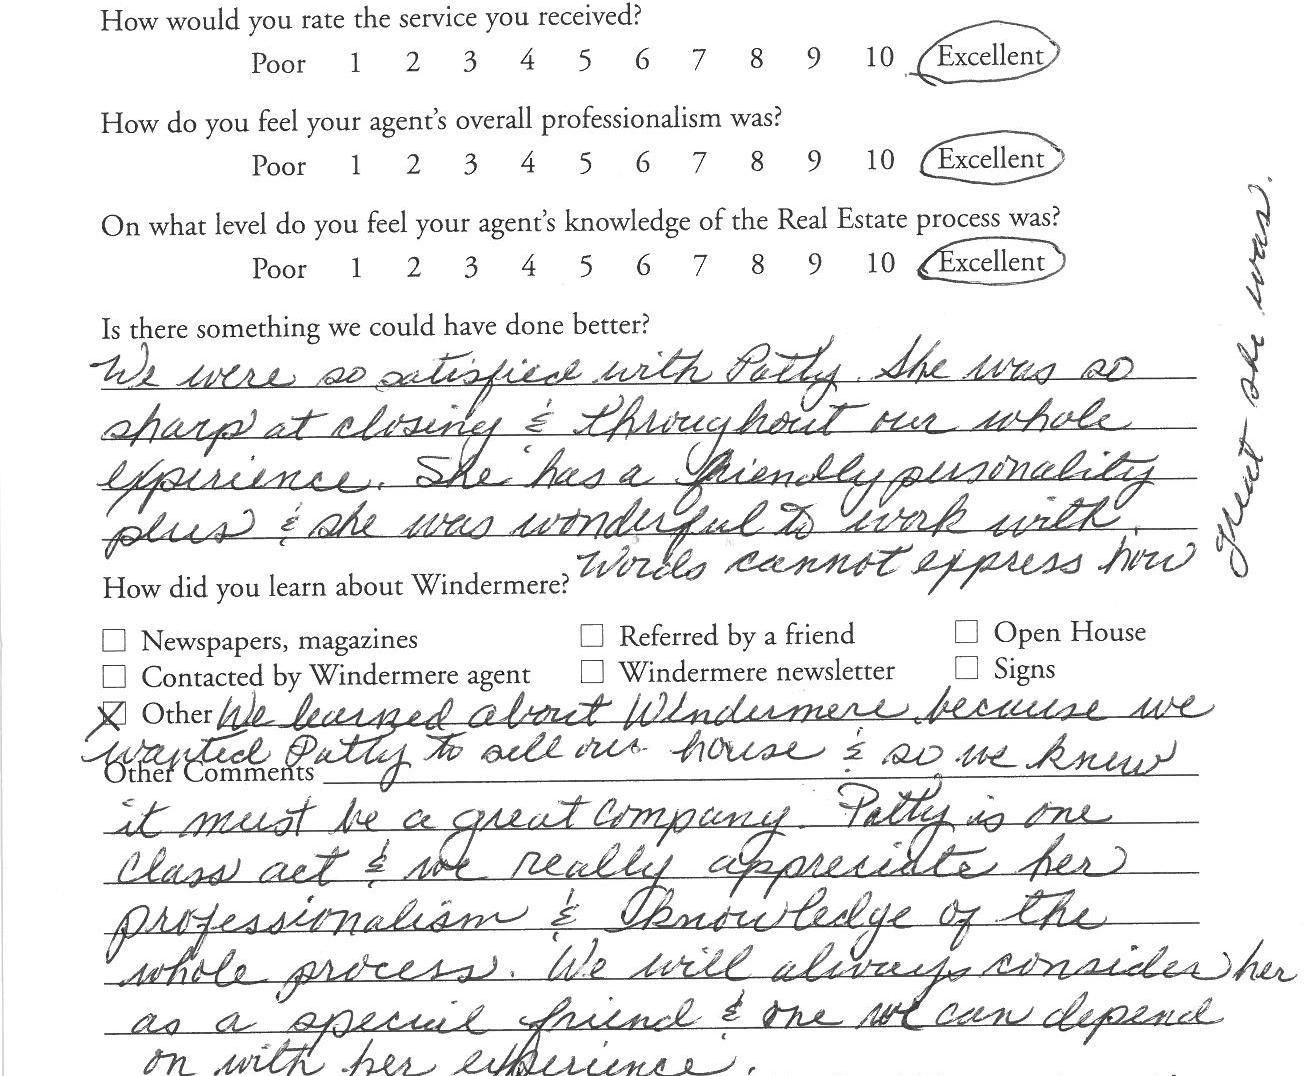 How would you rate the service you received?
Poor 1 2 3 4 5 6 7 8 9 10 Excellent
How do you feel your agent's overall professionalism was?
Poor 1 2 3 4 5 6 7 8 9 10 Excellent
On what level do you feel your agent's knowledge of the Real Estate process was?
Poor 1 2 3 4 5 6 7 8 9 10 Excellent
Is there something we could have done better?
We were so satisfied with Patty. She was so
sharp at closing & throughout our whole
experience. She has a friendly personality
plus & she was wonderful to work with.
Words cannot express how
great she was.
How did you learn about Windermere?
Newspapers, magazines Referred by a friend Open House
Contacted by Windermere agent Windermere newsletter Signs
Other We learned about Windermere because we
wanted Patty to sell our house & so we knew
Other Comments
it must be a great company. Patty is one
class act & we really appreciate her
professionalism & knowledge of the
whole process. We will always consider her
as a special friend & one we can depend
on with her experience.